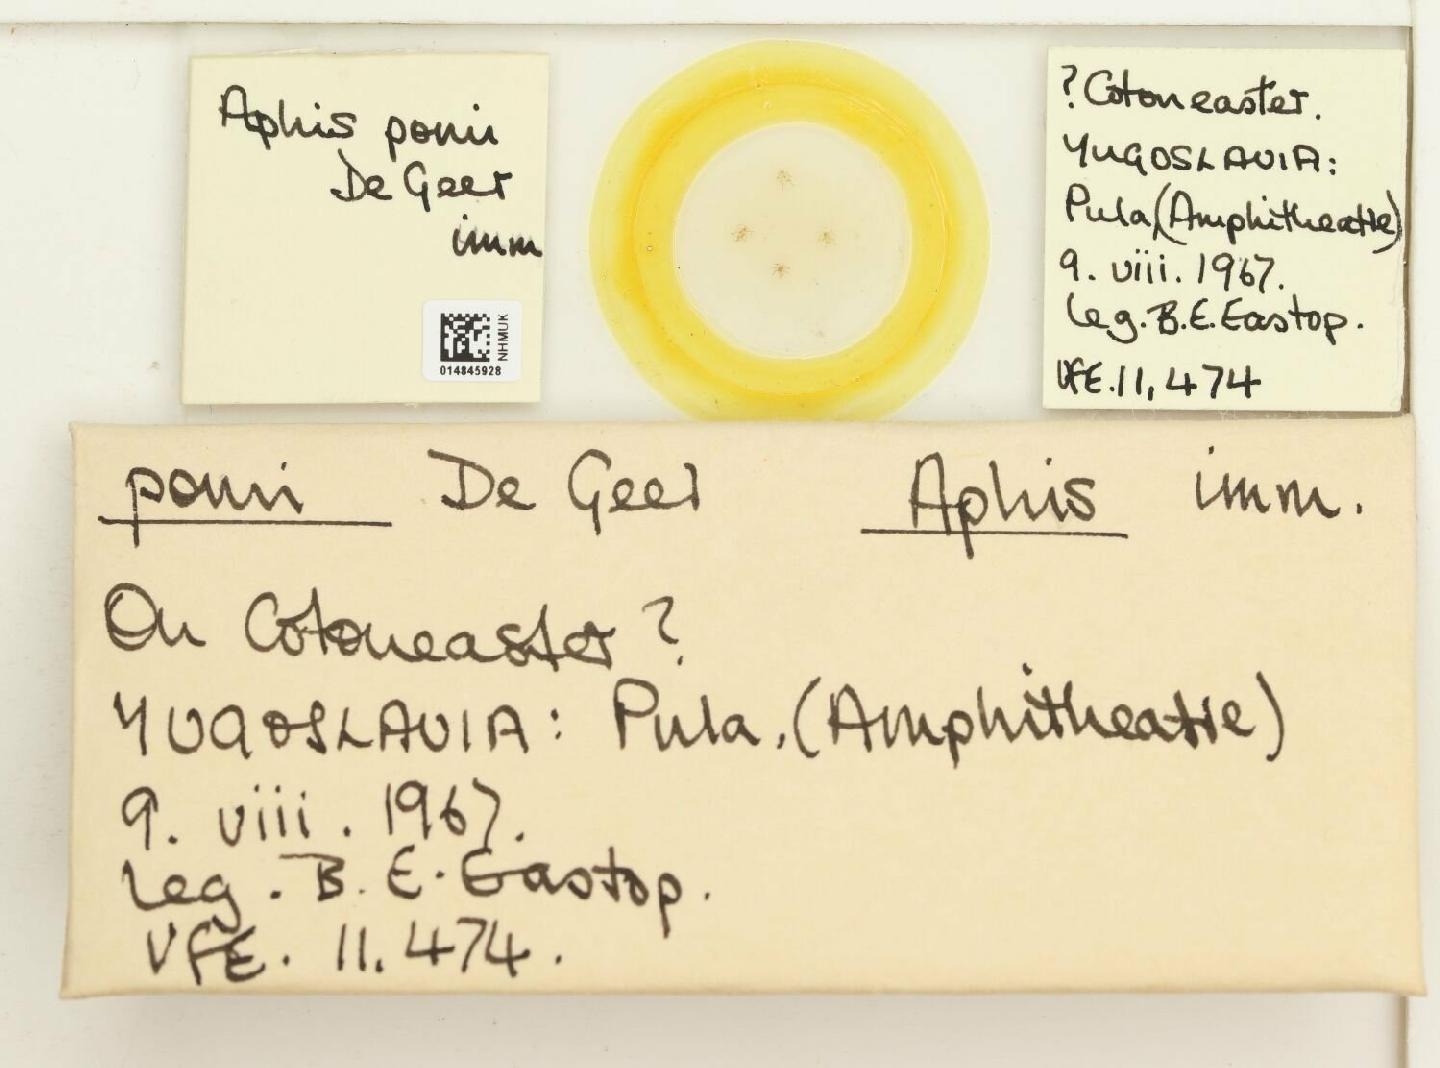 Aphis pomi
De Geer
imm
NHMUK
014845928
? Cotoneaster.
YUGOSLAVIA:
Pula, (Amphitheatre)
9. viii. 1967.
Leg. B.E. Eastop.
VFE. 11,474
pomi De Geer Aphis imm.
On Cotoneaster ?
YUGOSLAVIA: Pula, (Amphitheatre)
9. viii. 1967.
Leg. B. E. Eastop.
VFE. 11.474.